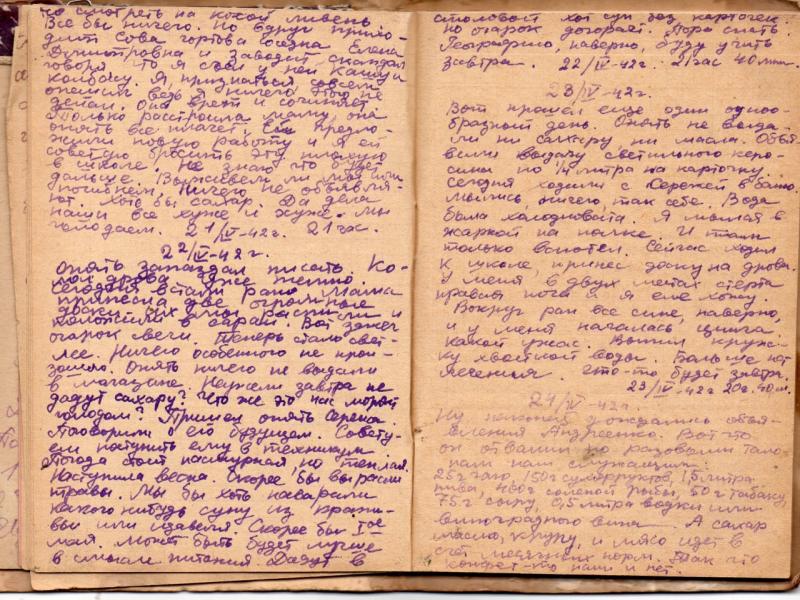 но смотреть на какой ливень
Все бы ничего. Но вдруг прихо-
дит сова чертова соседка Елена
Дмитровна и заводит скандал
говоря что я съел у ней кашу и
колбасу. Я, признаться, совсем
опешил ведь я ничего этого не
делал. Она врет и сочиняет
Только расстроила маму, она
опять все плачет. Ей предло-
жили новую работу и я ей
советую бросить эту
в школе. Не знаю что будет
дальше. Выживем ли мы или
погибнем. Ничего не объявля-
ют. Хотя бы сахар. Да дела
наши все хуже и хуже. Мы
голодаем. 21/IV-42г. 21 час.
22/IV-42г.
Опять запоздал писать. Ко-
уже темно
Сегодня встали рано. Мама
принесла две огромные
доски, их мы распилили и
в сарай. Вот зажег
огарок свечи. Теперь стало свет-
лее. Ничего особенного не прои-
зошло. Опять ничего не выдали
в магазине. Неужели завтра не
дадут сахару? Что же это нас морят
голодом? Пришел опять Сережа.
Поговорили о его будущем. Совету-
ем поступить ему в техникум.
Погода стоит пасмурная, но теплая.
Наступила весна. Скорее бы выросли
травы. Мы бы хоть наварили
какого нибудь супу из крапи-
вы или щавеля. Скорее бы 1ое
мая. Может быть будет лучше
в смысле питания. Дадут в
столовой хоть суп без карточек.
но огарок догорает. Пора спать.
Географию, наверно, буду учить
завтра. 22/IV-42г. 21 час 40 мин.
23/IV-42г.
Вот прошел еще один одноо-
бразный день. Опять не выда-
ли ни сахару ни масла. Объя-
вили выдачу светильного керо-
сина по 1/4 литра на карточку.
Сегодня ходили с Сережей в баню.
Мылись, ничего, так себе. Вода
была холодновата. Я мылся в
жаркой на полке. И там
только вспотел. Сейчас ходил
к школе, принес доску на дрова.
У меня в двух местах стерта
правая нога и я еле хожу.
Вокруг ран все сине, наверно,
и у меня началась цынга.
Какой ужас. Выпил круж-
ку хвойной воды. Больше нет
лечения. Что-то будет завтра.
23/IV-42г 20 г. 40 м.
24/IV-42г.
Ну наконец дождались объя-
вления Андреенко. Вот что
он отвалил по разовым тало-
нам нам служащим:
25 г чаю, 150 г сухофруктов, 1,5 литра
пива, 400 г соленой рыбы, 50 г табаку,
75 г сыру, 0,5 литра водки или
виноградного вина. А сахар
масло, крупу, и мясо идет в
счет месячных норм. Так что
конфет-то нами и нет.